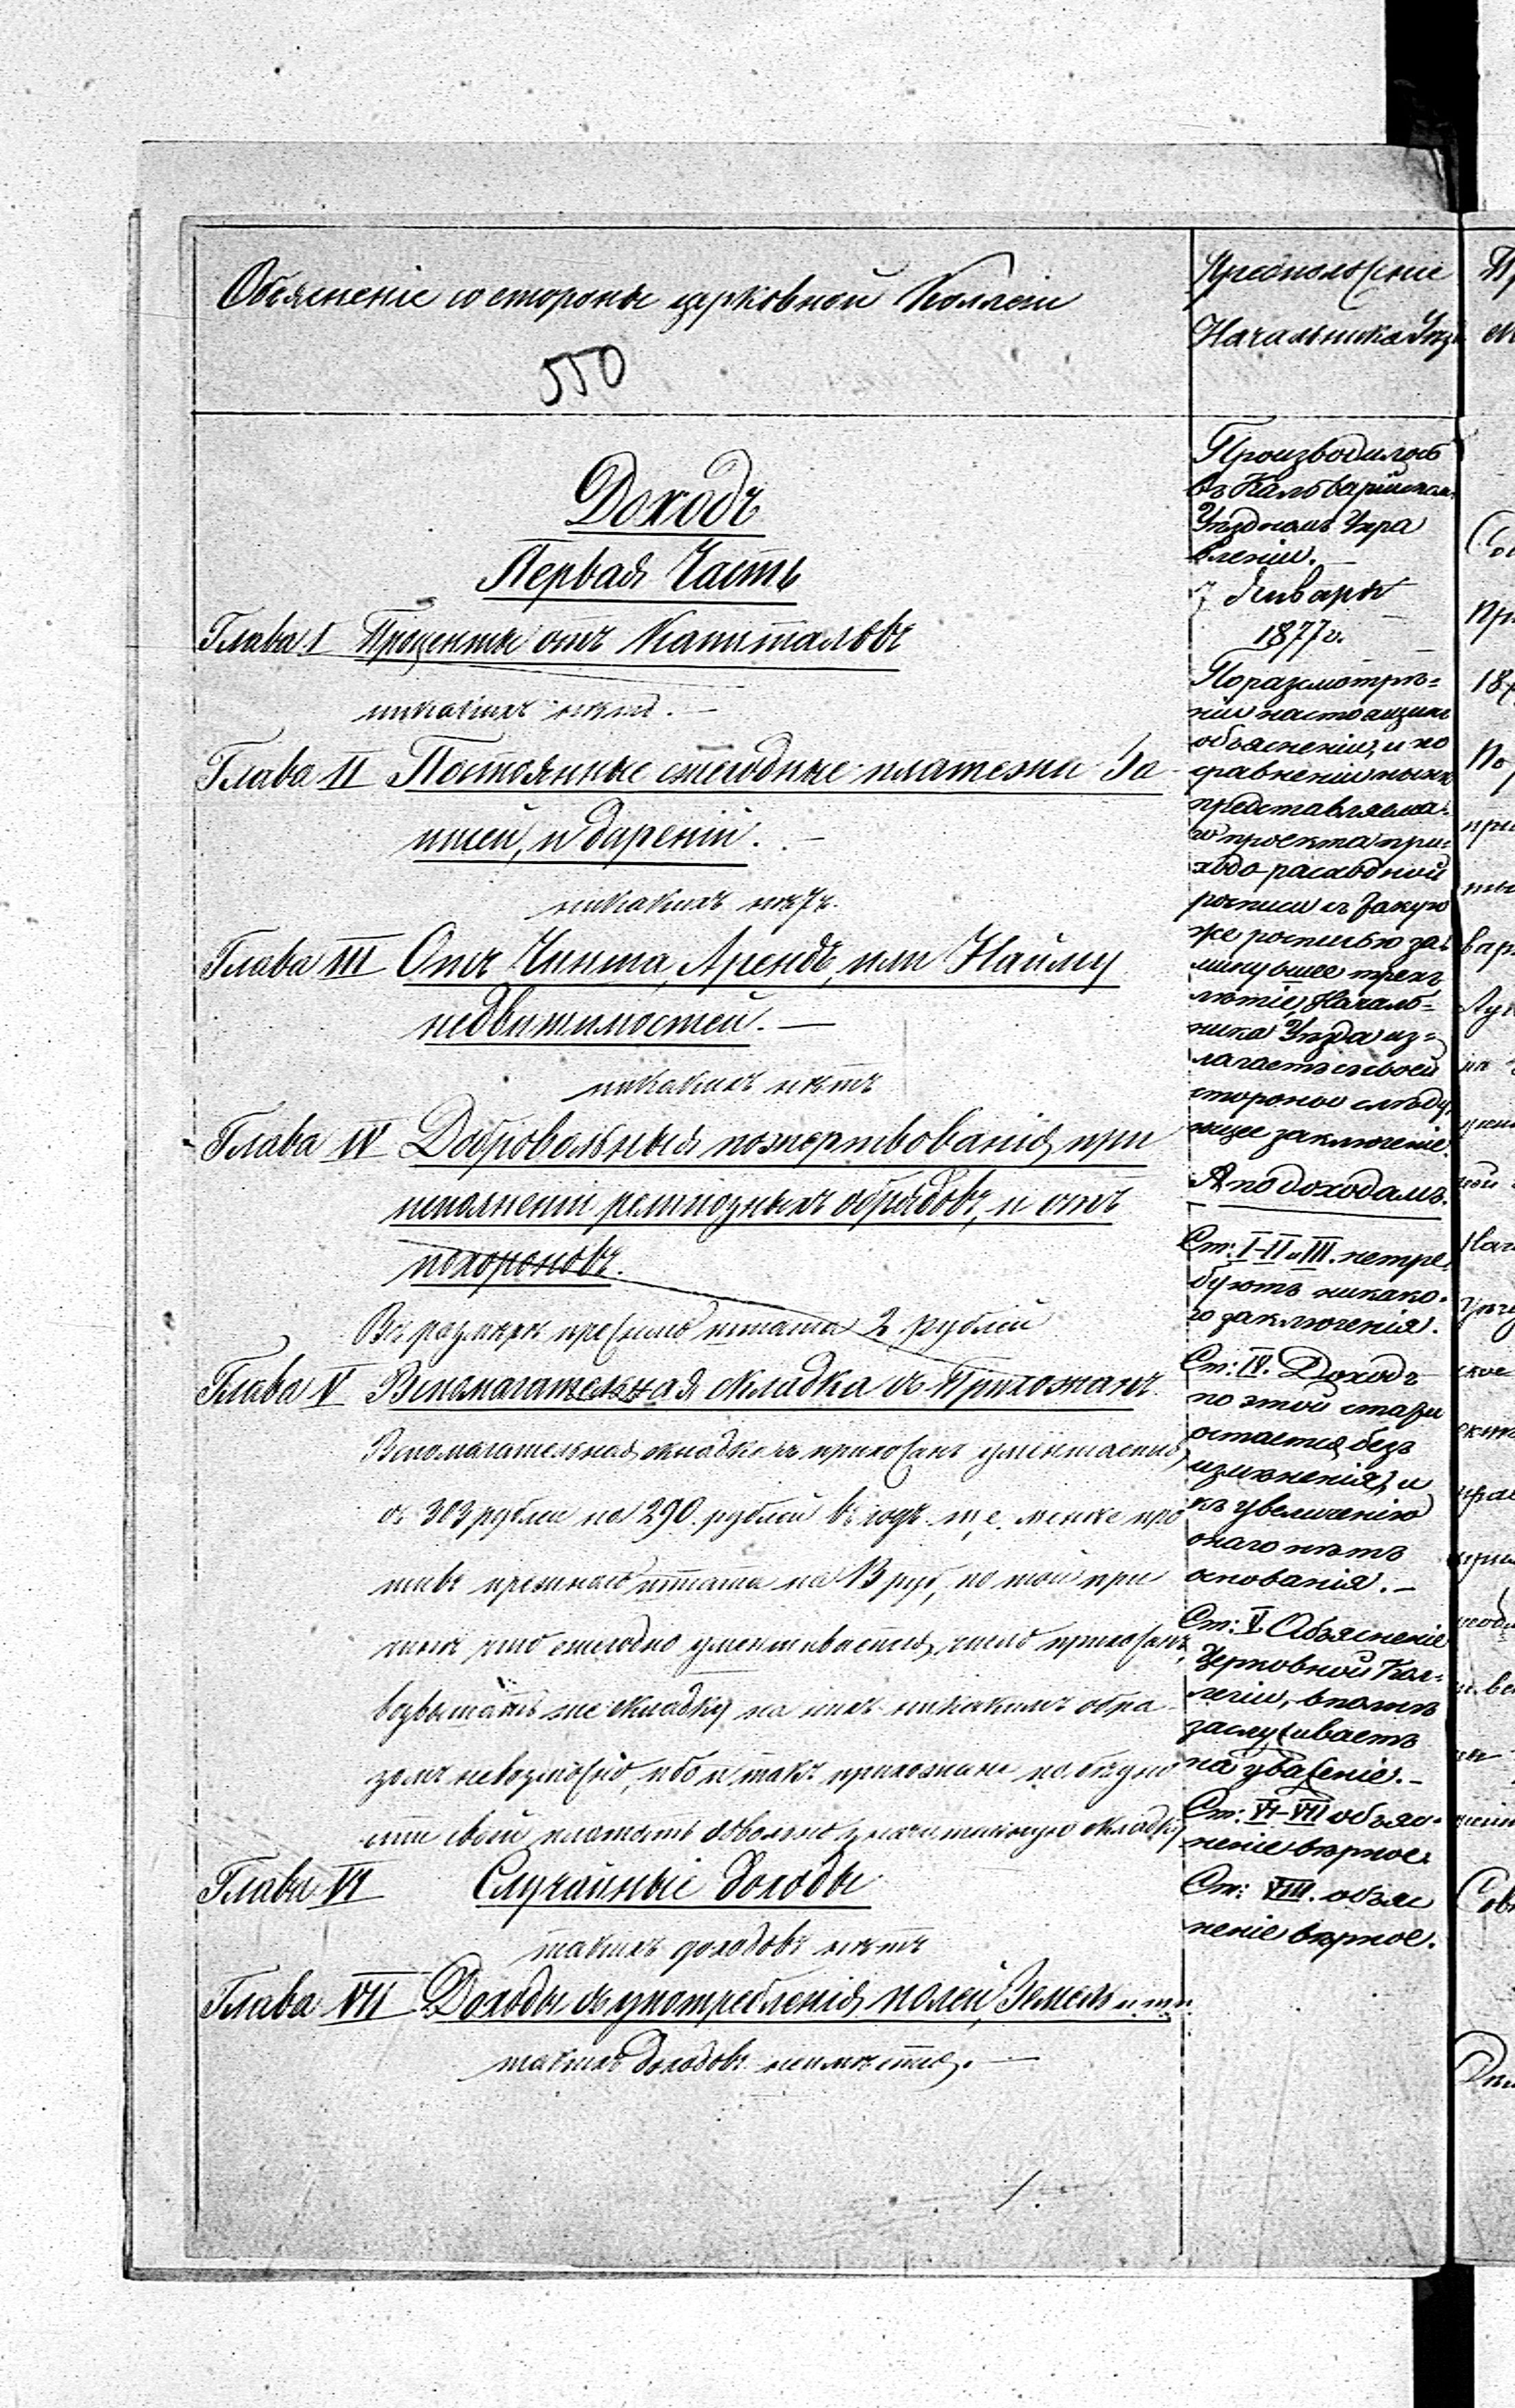 Объясненіе со стороны церковной Коллегіи
550
Доходъ
Первая Часть
Глава I Проценты отъ Капиталовъ
никакихъ нѣтъ. —
Глава II Постоянные ежегодные платежи За
писей, и дареній. —
никакихъ нѣтъ.
Глава III Отъ Чинша, Арендъ, или Найму
недвижимостей. —
никакихъ нѣтъ
Глава IV Добровольныя пожертвованія, при
исполненіи религіозныхъ обрядовъ, и отъ
похороновъ.
Въ размѣрѣ прежняго штата 2 рублей
Глава V Вспомагательная складка съ Прихожанъ.
Вспомагательная складка съ прихожанъ уменшается,
съ 303 рублей на 290. рублей въ годъ. т, е. менѣе про
тивъ прежнаго штата на 13 руб, по той при
чинѣ что ежегодно уменшивается, число прихожанъ,
возвышать же складку на нихъ никакимъ обра
зомъ невозможно, ибо и такъ прихожане по бѣдно
сти своей платятъ довольно значительную складку
Глава VI Случайные доходы
такихъ доходовъ нѣтъ
Глава VII Доходы съ употребленія полей, Земель и т. п.
такихъ доходовъ неимѣется. —
Предположеніе
Начальника Уѣз
Производилось
въ Кальварійскомъ
Уѣздномъ Упра
вленіи. —
7 Января
1877 г.
По разсмотрѣ=
ніи настоящихъ
объясненій, и по
сравненіи нынѣ
представляема=
го проекта при=
ходо-расходной
росписи съ такую
же росписью за
минувшее трех
лѣтіе, Началь=
никъ Уѣзда из=
лагаетъ съ своей
стороны слѣду
ющее заключеніе.
А по доходамъ.
Ст: I-II и III. нетре
буютъ никако=
го заключенія.
Ст: IV. Доходъ
по этой статьи
остается безъ
измѣненія, и
къ увеличенію
онаго нѣтъ
основанія. —
Ст: V. Объясненіе
Церковной Кол=
легіи, вполнѣ
заслуживаетъ
на уваженіе. —
Ст: VI-VII объяс=
неніе вѣрное.
Ст: VIII. объяс
неніе вѣрное.